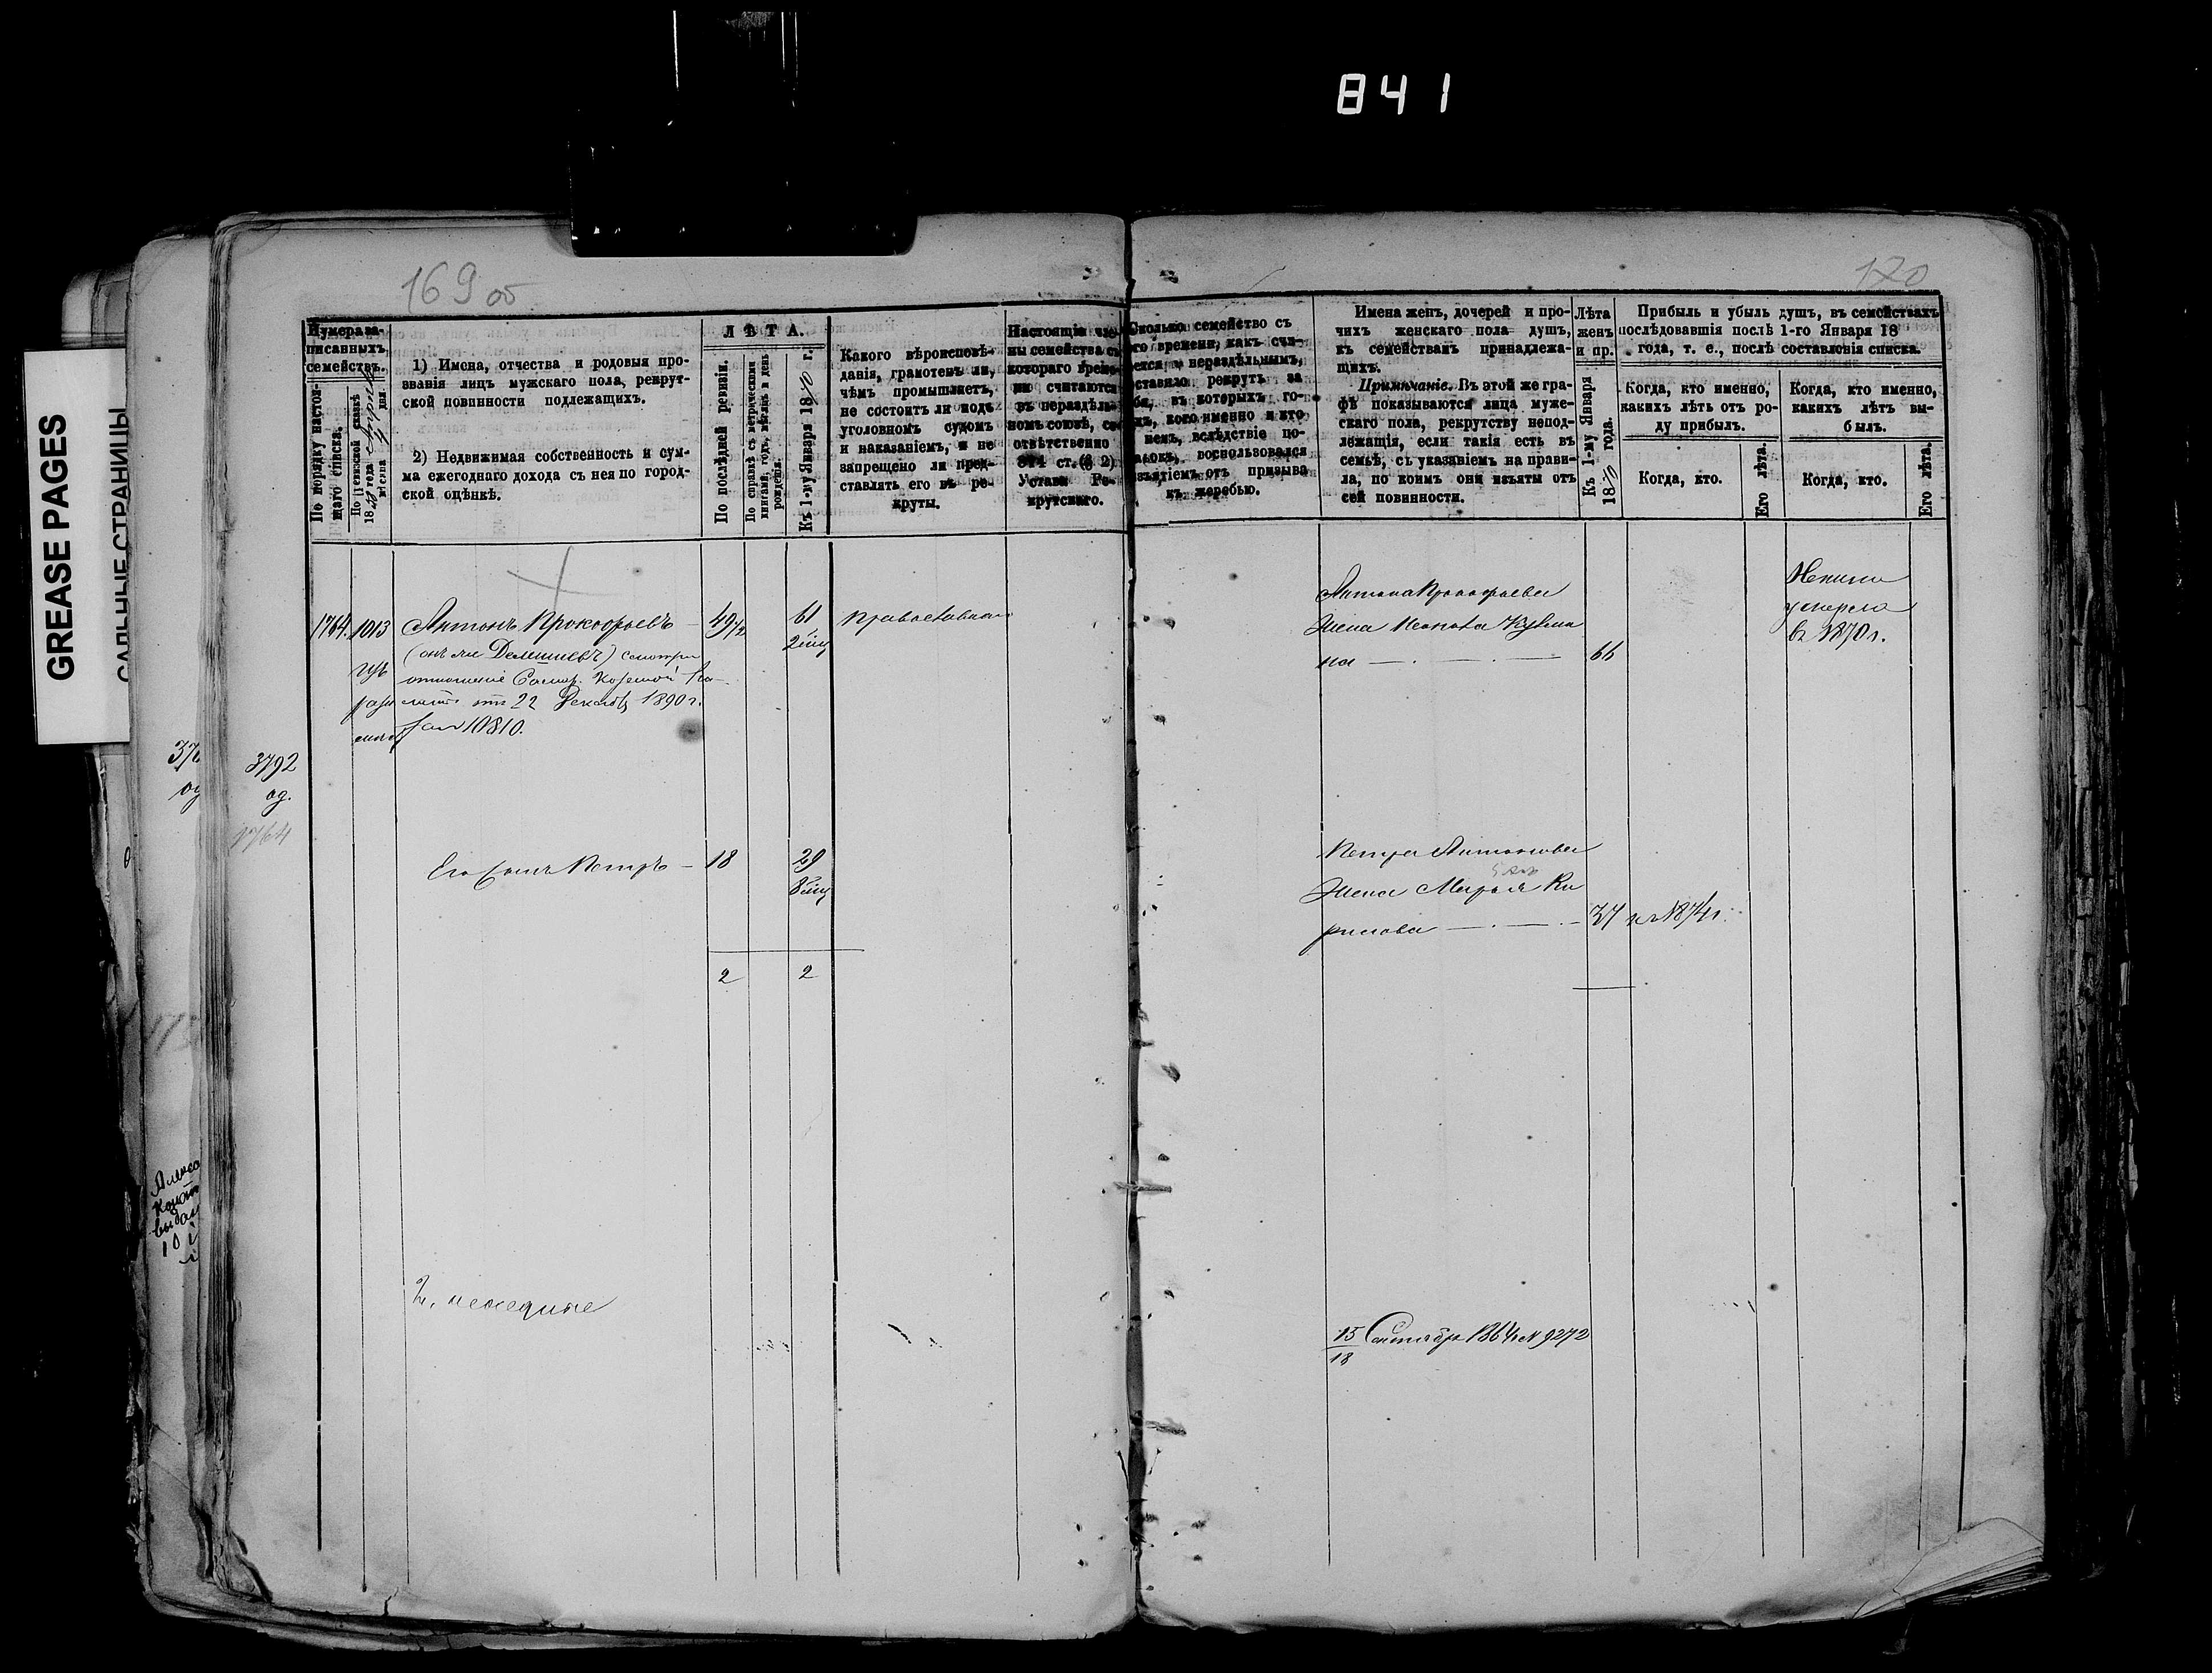 841
GREASE PAGES
САЛЬНЫЕ СТРАНИЦЫ
169 об
120
Нумера за-
писанныхъ
семействъ.
По порядку настоя-
щаго списка.
По ревизской сказкѣ
18 года
мѣсяца дня.
1) Имена, отчества и родовыя про-
званія лицъ мужскаго пола, рекрут-
ской повинности подлежащихъ.
2) Недвижимая собственность и сум-
ма ежегоднаго дохода съ нея по город-
ской оцѣнкѣ.
ЛѢТА.
По послѣдней ревизіи.
По справкѣ съ метрическими
книгами, годъ, мѣсяцъ и день
рожденія.
Къ 1-му Января 18 г.
Какого вѣроисповѣ-
данія, грамотенъ ли,
чѣмъ промышляетъ,
не состоитъ ли подъ
уголовномъ судомъ
и наказаніемъ, и не
запрещено ли пред-
ставлять его въ ре-
круты.
Настоящіе чле-
ны семейства съ
котораго време-
ни считаются
въ нераздѣль-
номъ союзѣ, со-
отвѣтственно
874 ст. (§ 2)
Устава Ре-
крутскаго.
Сколько семейство съ
го времени, какъ счи-
ается нераздѣльнымъ,
ставило рекрутъ за
бя, въ которыхъ го-
хъ, кого именно и кто
немъ, вслѣдствіе по-
воспользовался
изъятіемъ отъ призыва
къ жеребью.
Имена женъ, дочерей и про-
чихъ женскаго пола душъ,
къ семействамъ принадлежа-
щихъ.
Примѣчаніе. Въ этой же гра-
фѣ показываются лица муже-
скаго пола, рекрутству непод-
лежащія, если такія есть въ
семьѣ, съ указаніемъ на прави-
ла, по коимъ они изъяты отъ
сей повинности.
Лѣта
женъ
и пр.
Къ 1-му Января
18 года.
Прибыль и убыль душъ, въ семействахъ
послѣдовавшія послѣ 1-го Января 18
года, т. е., послѣ составленія списка.
Когда, кто именно,
какихъ лѣтъ отъ ро-
ду прибылъ.
Когда, кто именно,
какихъ лѣтъ вы-
былъ.
Когда, кто.
Его лѣта.
Когда, кто.
Его лѣта.
1764. 1013 Антонъ Прокофьевъ — 49 1/2 61 православнаго
(онъ ли Демшиевъ) смотри
отношеніе Самар. Казенной Па-
латы отъ 22 Декабря 1890 г.
за № 1810.
3792
од.
1764
Его сынъ Петръ — 18 29
2 2
Антона Прокофьева
жена Кузьми
на — . — . — 66
умерла
въ 1870 г.
Петра Антонова
жена Марья Ки
рилова — . — . — 37 1874 г.
15 Сентября 1864 № 9272
18